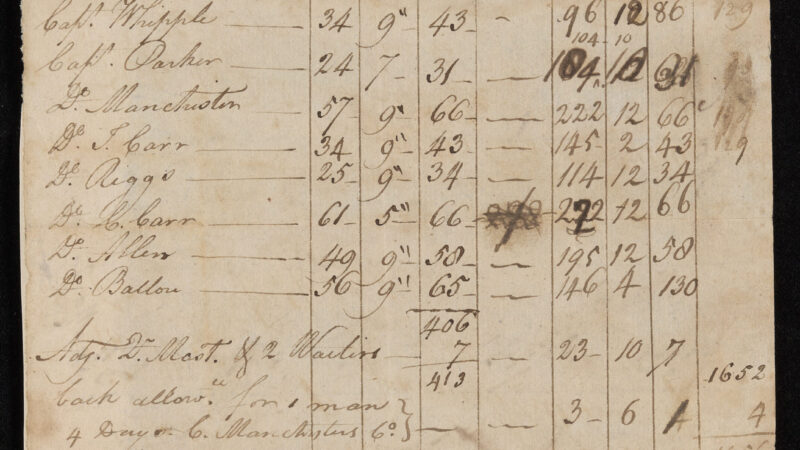 Capt. Whipple — 34 9" 43 - 96 12 86 129
104 10
Capt. Parker — 24 7 - 31 — 104 10
Do. Manchester 57 9" 66 — 222 12 66
Do. T. Carr — 34 9" 43 — 145 2 43 129
Do. Riggs — 25 9" 34 — 114 12 34
Do. C. Carr — 61 5" 66 222 12 66
Do. Allen — 49 9" 58 — 195 12 58
Do. Ballou — 56 9" 65 — 146 4 130
406
Adj. Qr. Mast. & 2 Waiters — 7 — 23 - 10 7
413
1652
Back allow.ce for 1 man
3 - 6 4
4 Days C. Manchesters Co. —